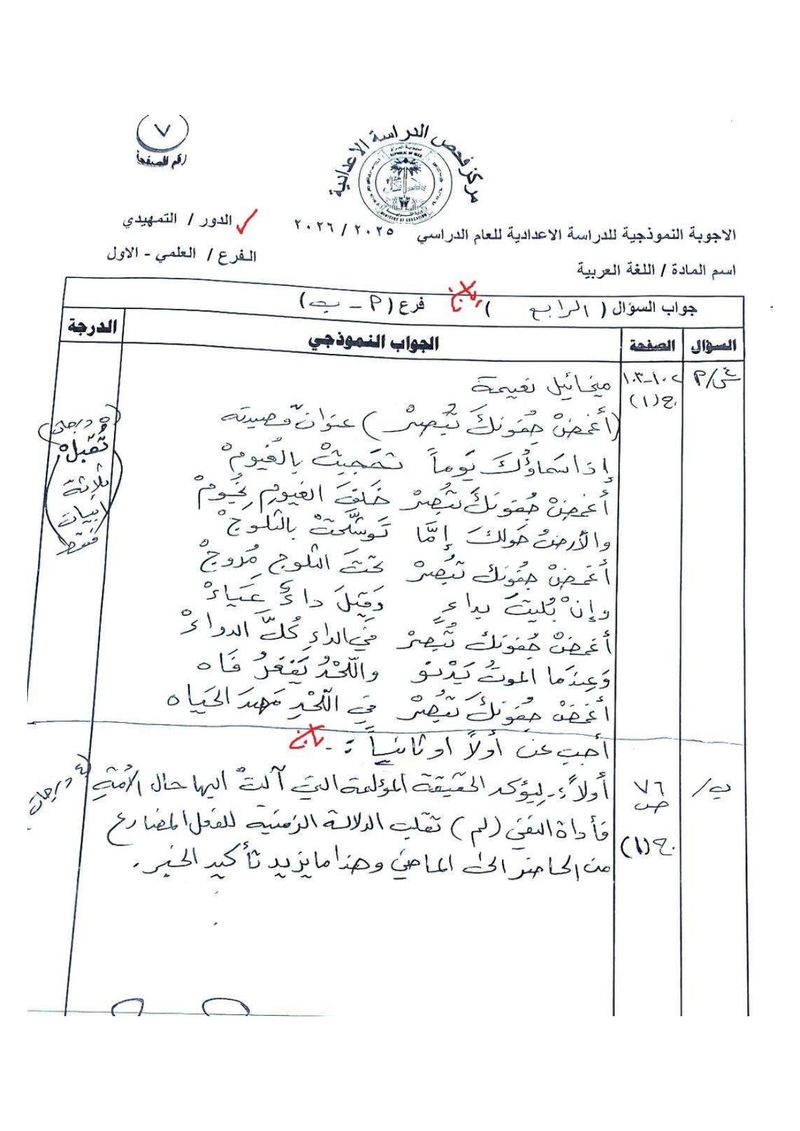 ٧
رقم الصفحة
مركز فحص الدراسة الاعدادية
الاجوبة النموذجية للدراسة الاعدادية للعام الدراسي ٢٠٢٥ / ٢٠٢٦
الدور / التمهيدي
اسم المادة / اللغة العربية
الفرع / العلمي - الاول
جواب السؤال ( الرابع ) فرع ( أ - ب )
السؤال
الصفحة
الجواب النموذجي
الدرجة
١٠٢-١٠٣
ج(١)
ميخائيل نعيمة
(أغمضْ جفونكَ تُبصرْ) عنوان قصيدته
إذا سماؤك يوماً تحجبتْ بالغيومْ
أغمضْ جفونكَ تُبصرْ خلفَ الغيومِ نجومْ
والأرضُ حولكَ إمَّا توشَّحتْ بالثلوجْ
أغمضْ جفونكَ تُبصرْ تحتَ الثلوجِ مُروجْ
وإنْ بُليتَ بداءٍ وقيلَ داءٌ عَياءْ
أغمضْ جفونكَ تُبصرْ في الداءِ كُلَّ الدواءْ
وعندما الموتُ يَدنو واللَّحدُ يَفغَرُ فاه
أغمضْ جفونكَ تُبصرْ في اللَّحدِ مَهدَ الحياه
٥ درجات
تُقبل
ثلاثة
ابيات
فقط
أجب عن أولاً او ثانياً :-
ب/
٧٦
ص
ج(١)
أولاً:- ليؤكد الحقيقة المؤلمة التي آلتْ اليها حال الأمةِ
فأداة النفي (لم) تقلب الدلالة الزمنية للفعل المضارع
من الحاضر الى الماضي وهذا مايزيد تأكيد الخبر.